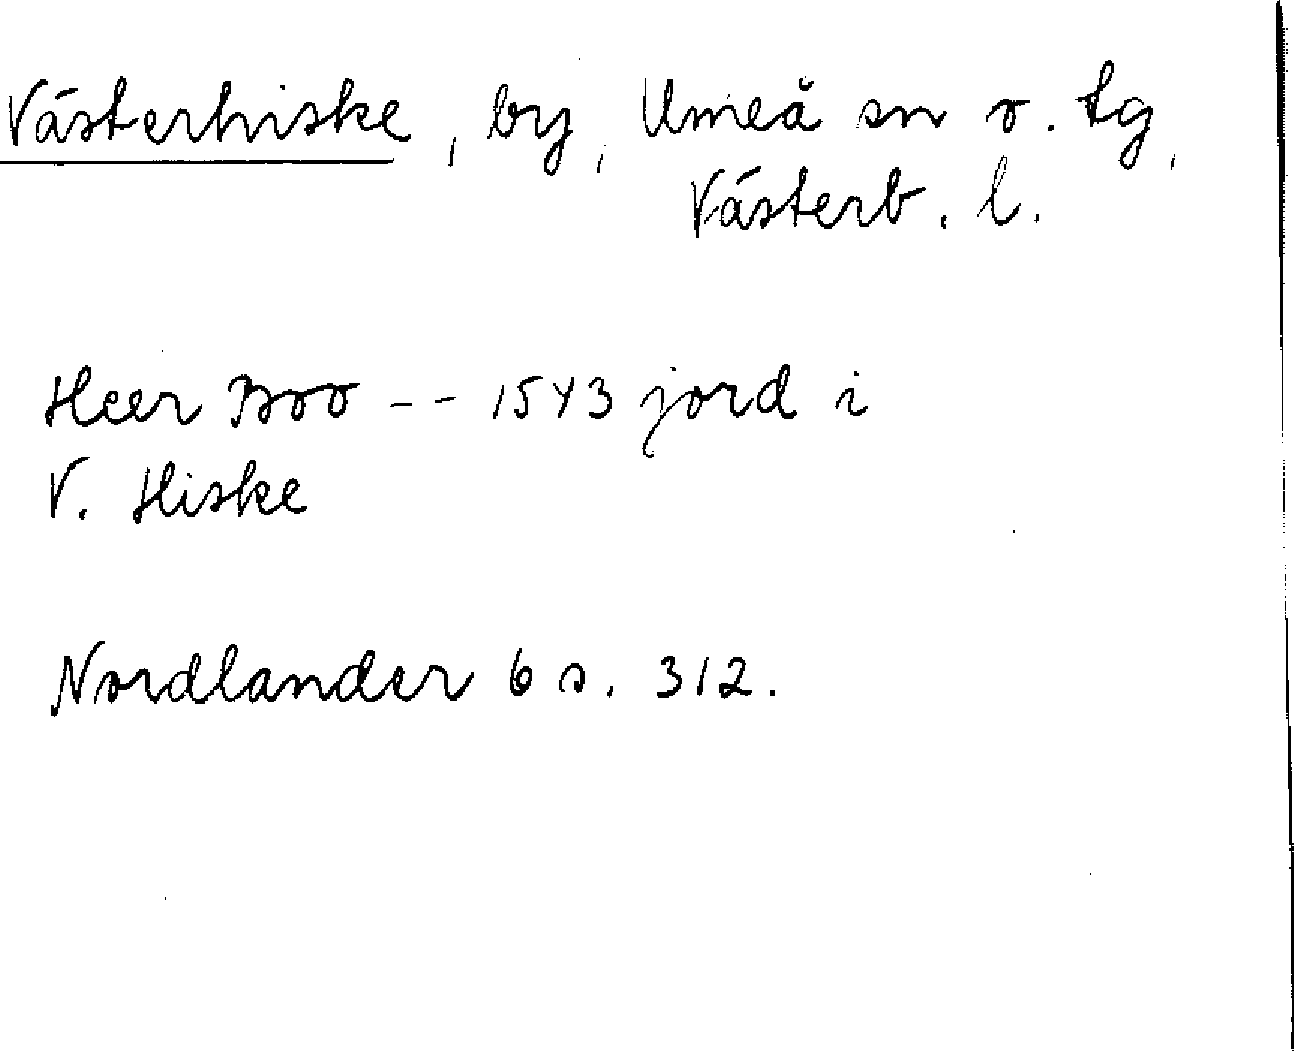 Västerhiske, by, Umeå sn o. tg,
Västerb. l.
Heer Boo -- 1543 jord i
V. Hiske
Nordlander 6 s. 312.